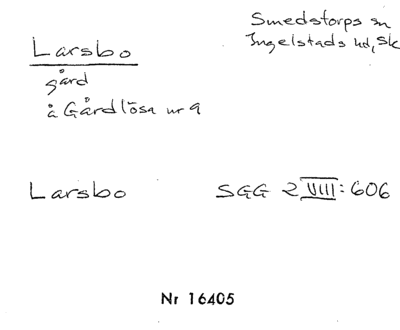 Smedstorps sn
Ingelstads hd, Sk
Larsbo
gård
å Gårdlösa nr 9
Larsbo SGG 2 VIII: 606
Nr 16405